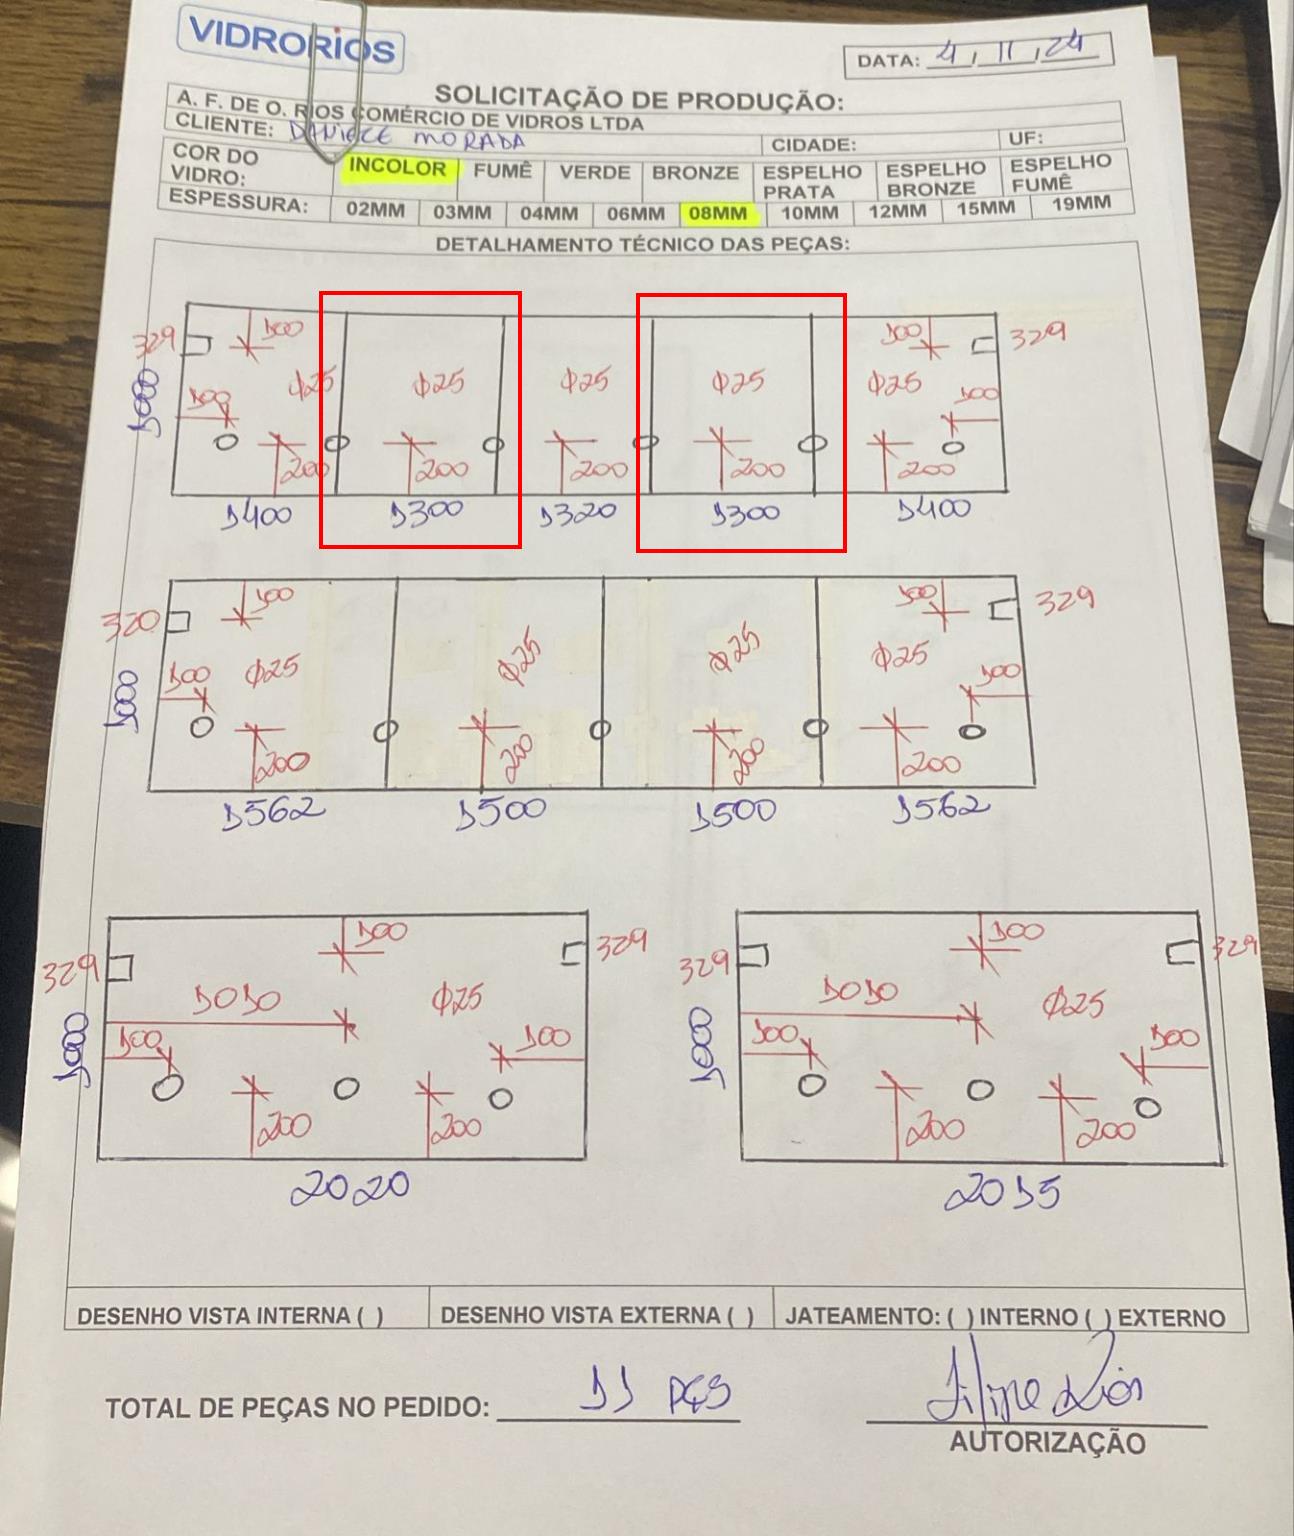 VIDRORIOS
DATA: 4 / 11 / 24
SOLICITAÇÃO DE PRODUÇÃO:
A. F. DE O. RIOS COMÉRCIO DE VIDROS LTDA
CLIENTE: MORADA CIDADE: UF:
COR DO VIDRO: INCOLOR FUMÊ VERDE BRONZE ESPELHO PRATA ESPELHO BRONZE ESPELHO FUMÊ
ESPESSURA: 02MM 03MM 04MM 06MM 08MM 10MM 12MM 15MM 19MM
DETALHAMENTO TÉCNICO DAS PEÇAS:
329 100 100 329
1000 100 Φ25 Φ25 Φ25 Φ25 Φ25 100
200 200 200 200 200
1400 1300 1320 1300 1400
320 100 100 329
1000 100 Φ25 Φ25 Φ25 Φ25 100
200 200 200 200
1562 1500 1500 1562
329 100 329 329 100 329
1010 Φ25 1010 Φ25
1000 100 100 1000 100 100
200 200 200 200
2020 2015
DESENHO VISTA INTERNA ( ) DESENHO VISTA EXTERNA ( ) JATEAMENTO: ( ) INTERNO ( ) EXTERNO
TOTAL DE PEÇAS NO PEDIDO: 11 PÇS
AUTORIZAÇÃO